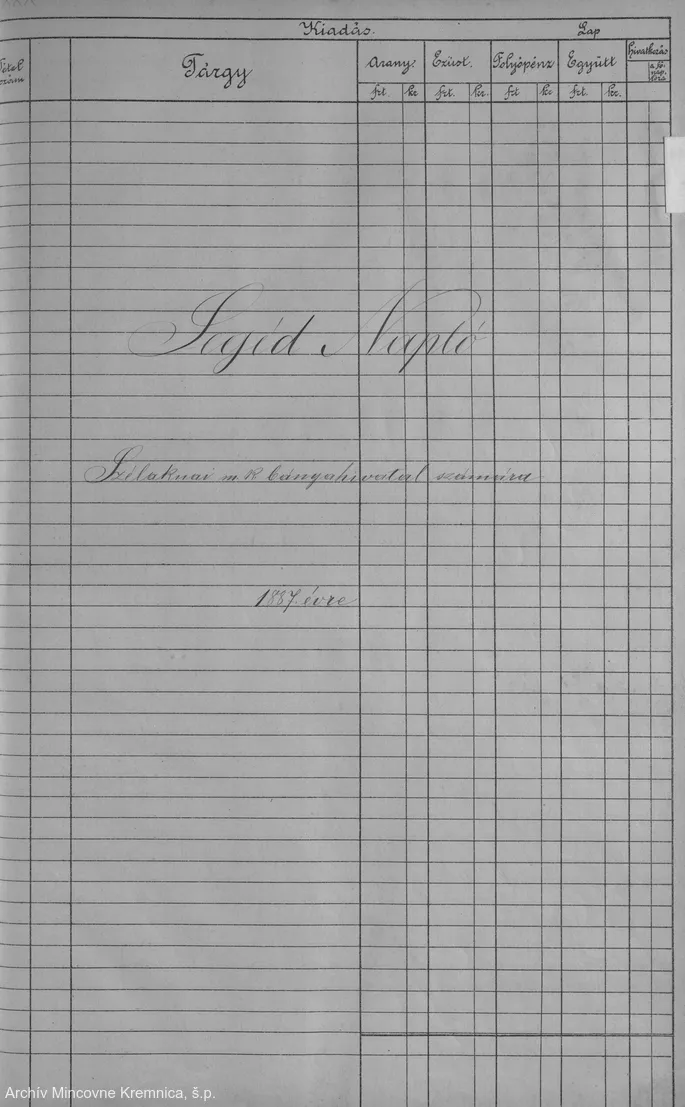 Kiadás. Lap
Tétel szám Tárgy Arany. Ezüst. Folyópénz Együtt hivatkozás
a fő naplóra
frt. kr frt. kr. frt kr frt. kr.
Segéd Napló
Szélaknai m k bányahivatal számára
1887. évre
Archív Mincovne Kremnica, š.p.